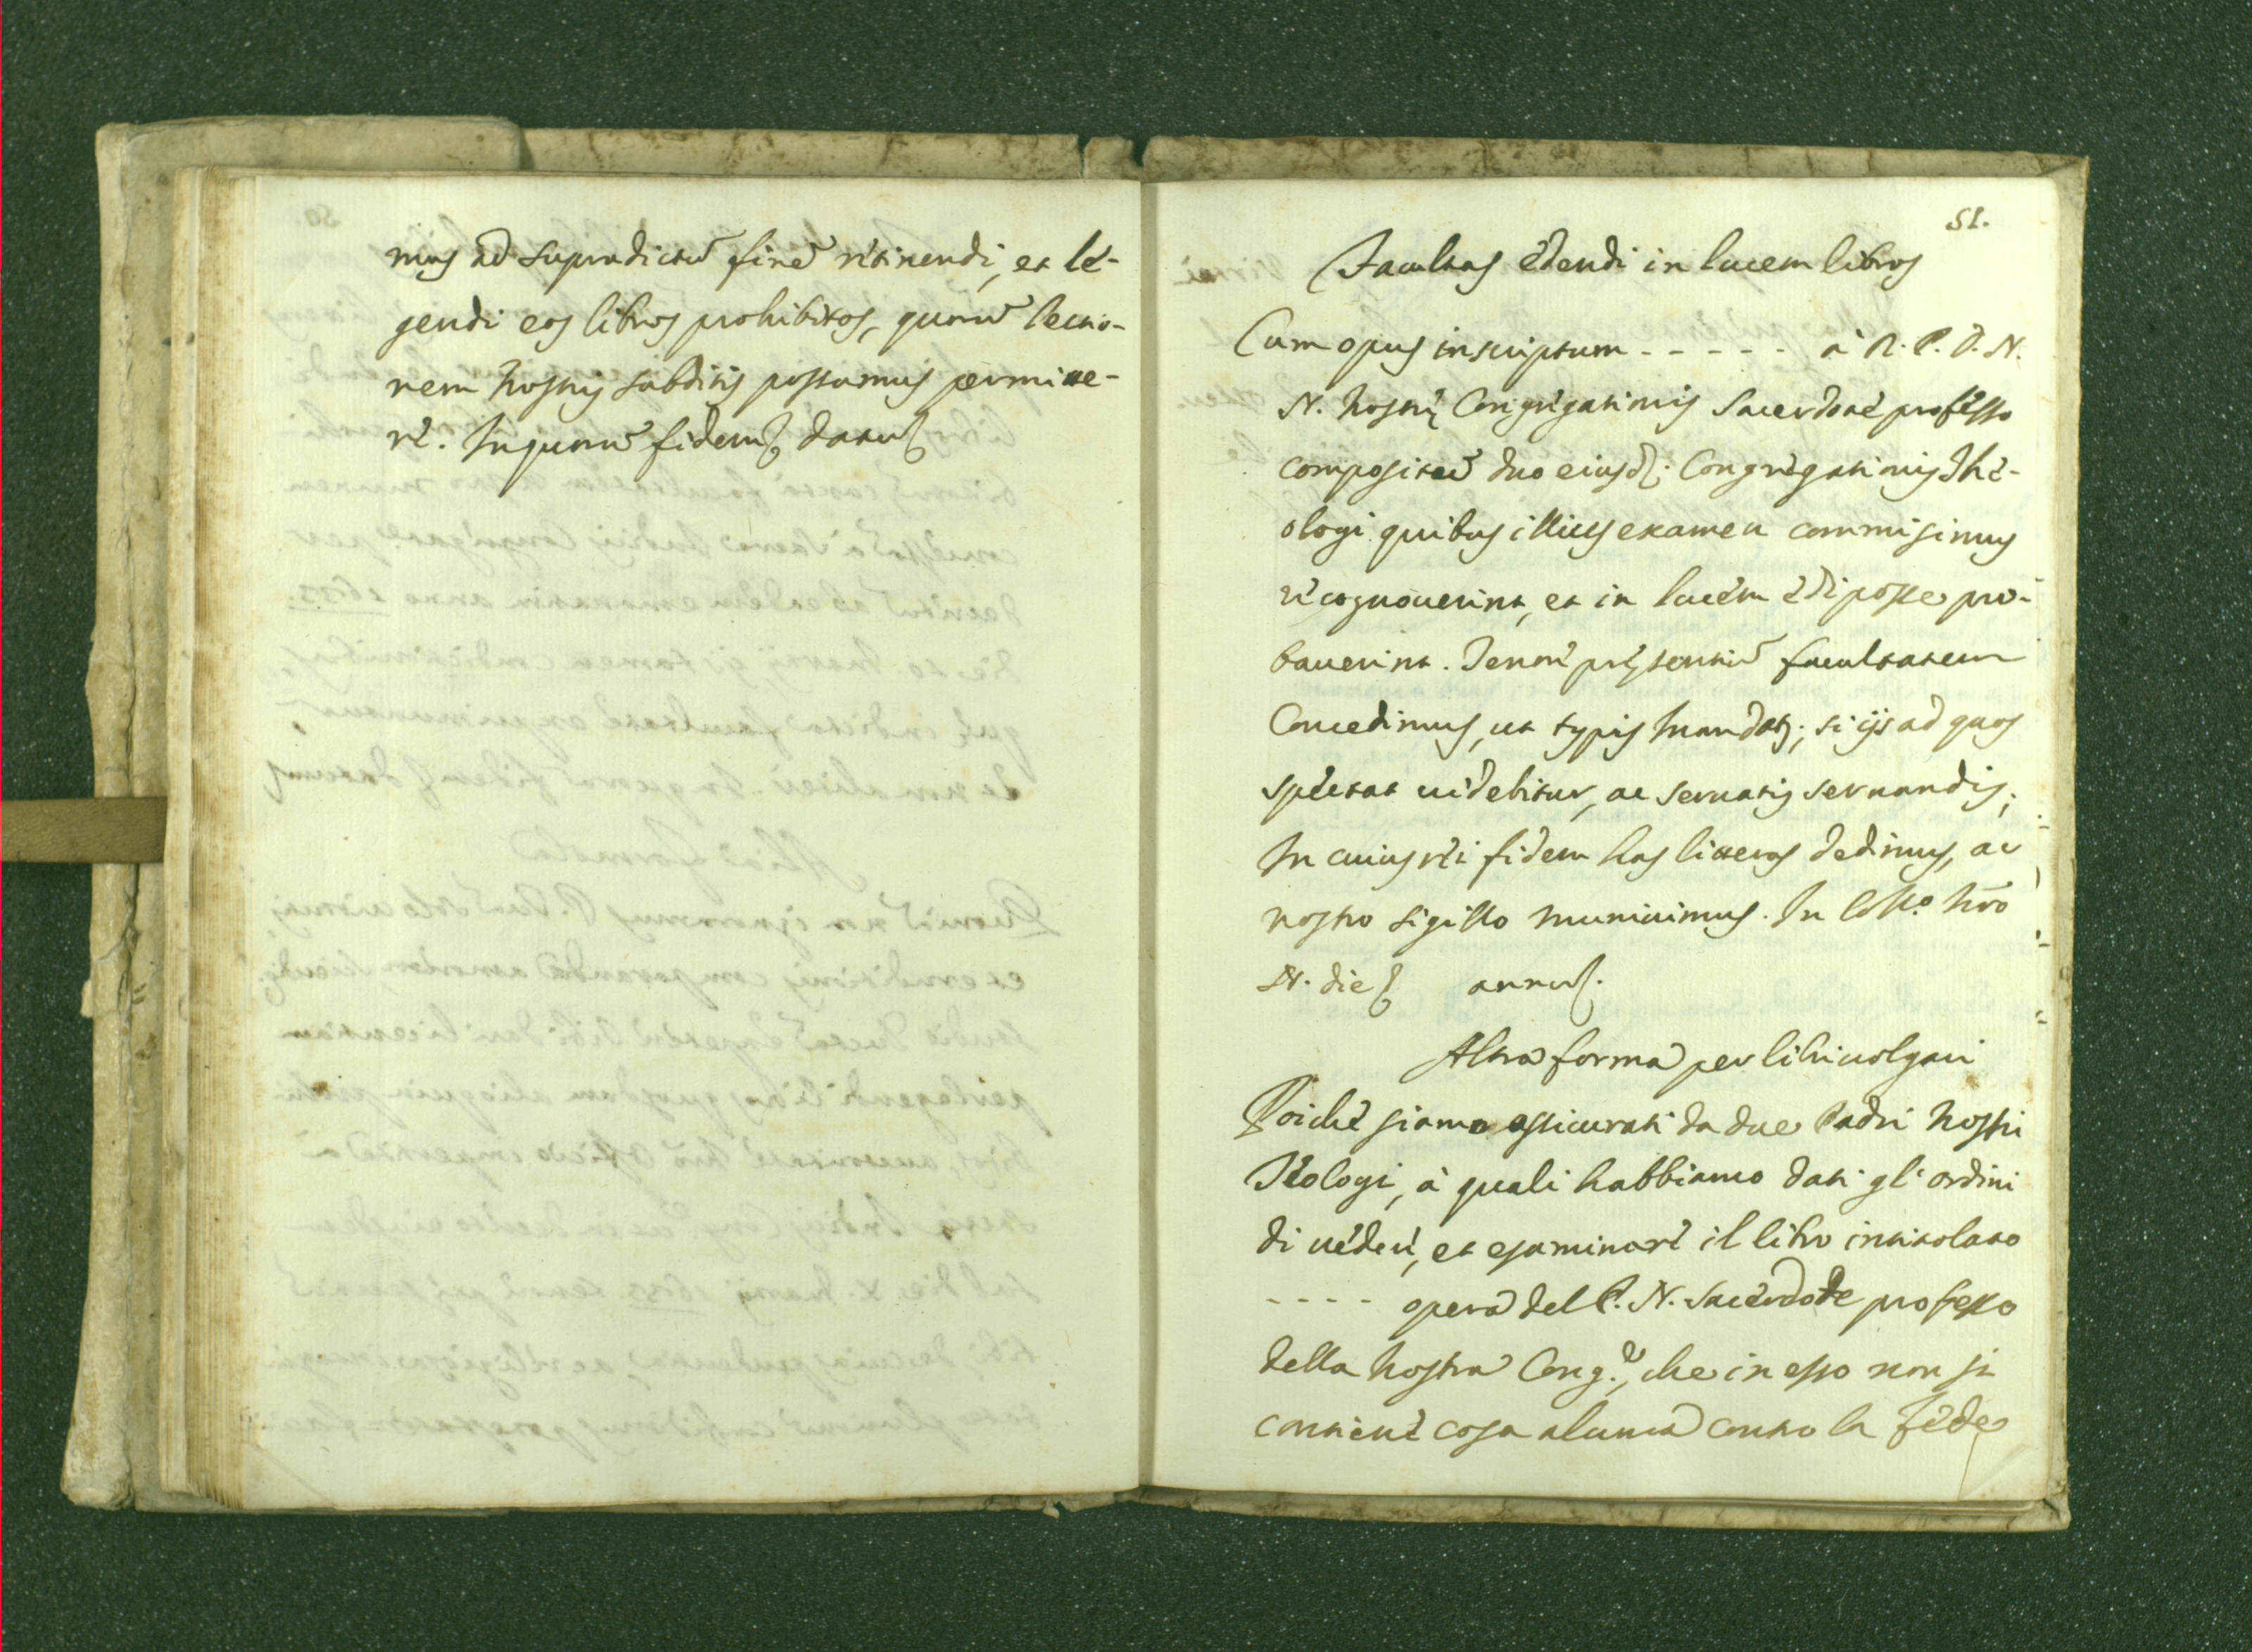 mus ad supradictū finē retinendi, et le-
gendi eos libros prohibitos, quorū lectio-
nem nostris subditis possumus permitte-
re. In quorū fidem datu
51.
Facultas edendi in lucem libros
Cum opus inscriptum - - - - - à R. P. D. N.
N. nostrę Congregationis Sacerdote professo
compositū duo eiusd. Congregationis The-
ologi quibus illius examen commisimus
recognouerint, et in lucem edi posse pro-
bauerint. Tenore pręsentiū facultatem
Concedimus, ut typis mandet; si ijs ad quos
spectat uidebitur, ac seruatis seruandis;
In cuius rei fidem has litteras dedimus, ac
nostro sigillo muniuimus. In Coll.o nr̄o
N. die annu
Altra forma per libri uolgari
Poiche siamo assicurati da due Padri nostri
Teologi, à quali habbiamo dati gl'ordini
di uedere, et esaminare il libro intitolato
- - - - opera del P. N. Sacerdote professo
della nostra Cong.e, che in esso non si
contiene cosa alcuna contro la fede